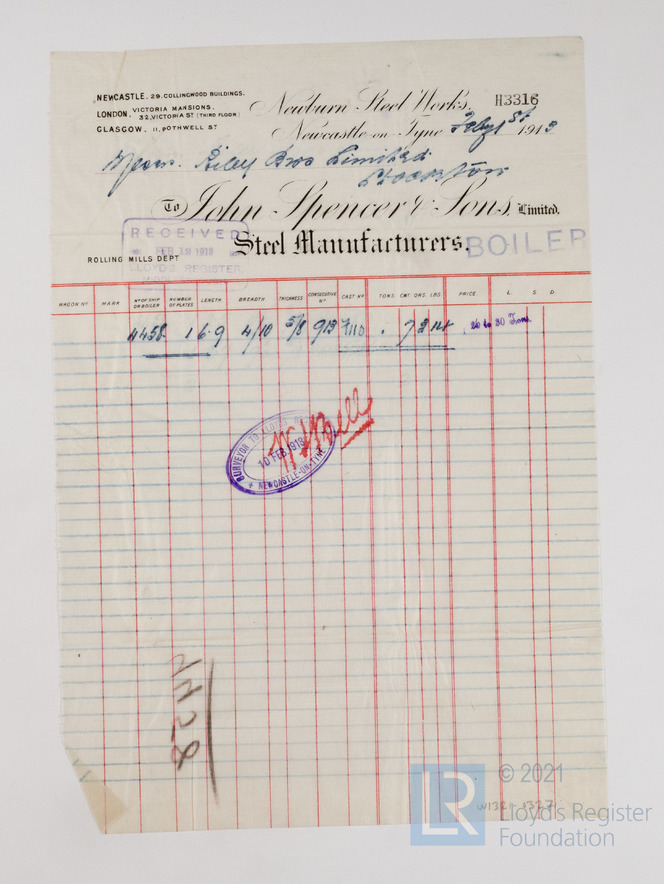 NEWCASTLE, 29, COLLINGWOOD BUILDINGS.
LONDON, VICTORIA MANSIONS,
32, VICTORIA ST (THIRD FLOOR)
GLASGOW, 11, BOTHWELL ST
Newburn Steel Works,
H3316
Newcastle-on-Tyne Feby 1st 1913
Messrs. Riley Bros Limited
Stockton
To John Spencer & Sons, Limited.
Steel Manufacturers.
BOILER
RECEIVED
FEB 1913
LLOYD'S REGISTER,
ROLLING MILLS DEPT
WAGON No MARK No OF SHIP OR BOILER NUMBER OF PLATES LENGTH BREADTH THICKNESS CONSECUTIVE No CAST No TONS. CWT. QRS. LBS. PRICE. L. S. D.
4458 1 6·9 4/10 5/8 913 7110 . 7 3 14 26 to 30 Tons
SURVEYOR TO LLOYD'S
10 FEB. 1913
NEWCASTLE-ON-TYNE
© 2021
LR Lloyd's Register
Foundation